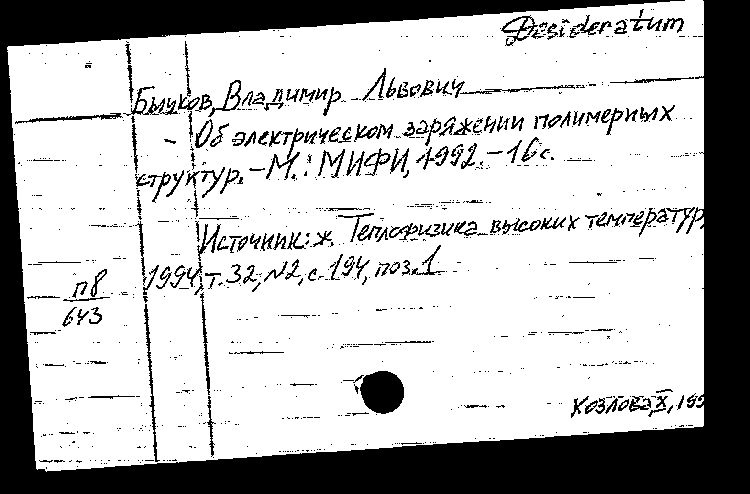 Desideratum
Бычков, Владимир Львович
- Об электрическом заряжении полимерных
структур. - М.: МИФИ, 1992. - 16 с.
Источник: ж. Теплофизика высоких температур,
1994, т. 32, N2, с. 194, поз. 1
п8
643
Козлова, X, 199